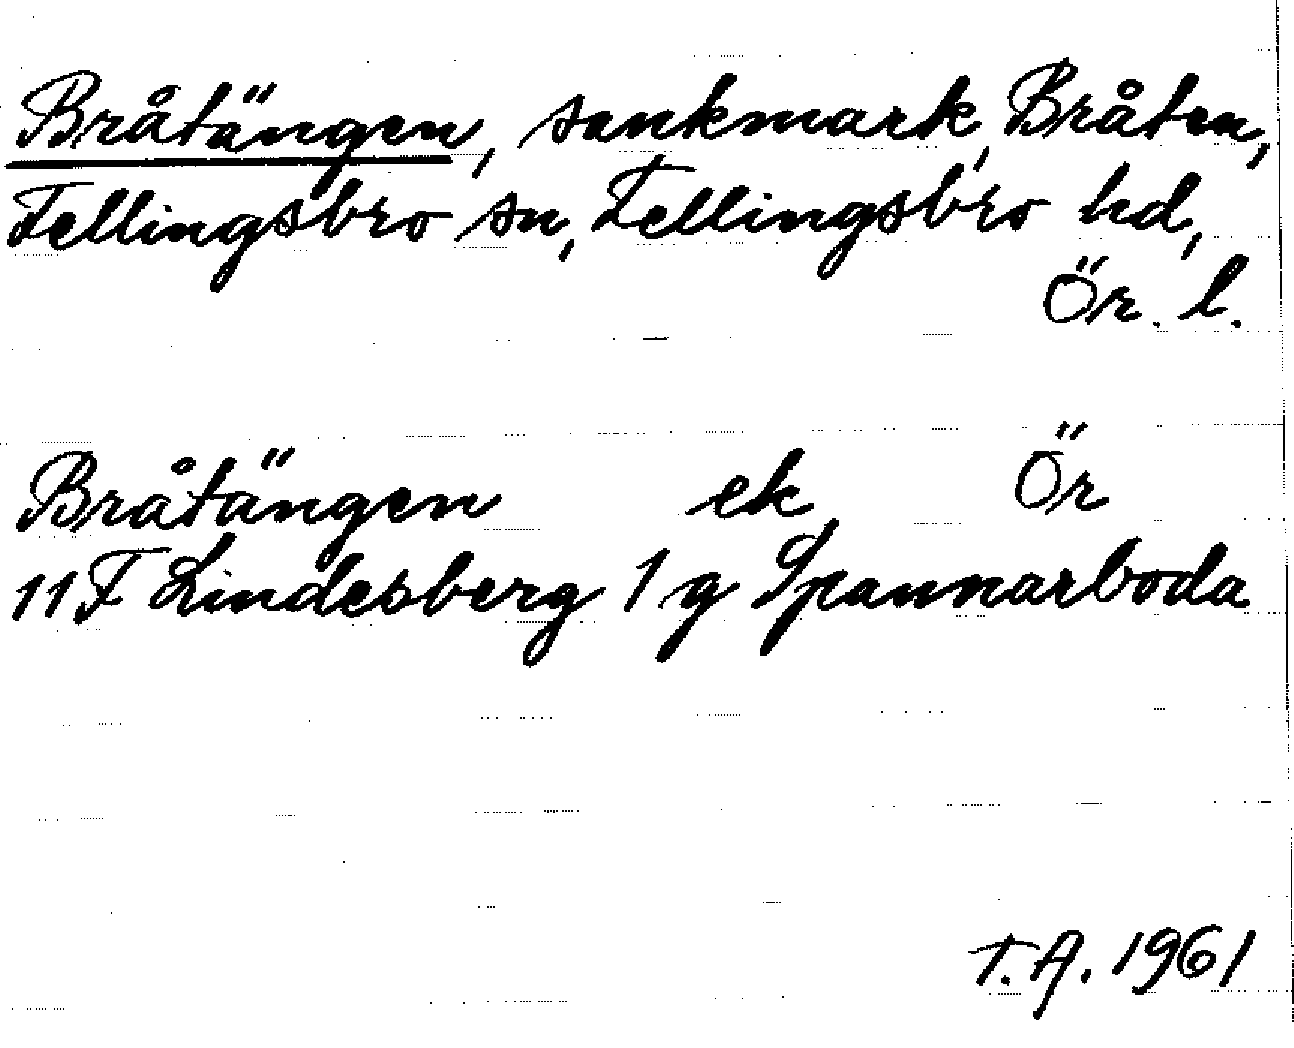 Bråtängen, sankmark, Bråten,
Fellingsbro sn, Fellingsbro hd,
Ör. l.
Bråtängen ek Ör
11F Lindesberg 1 g Spannarboda
T.A. 1961